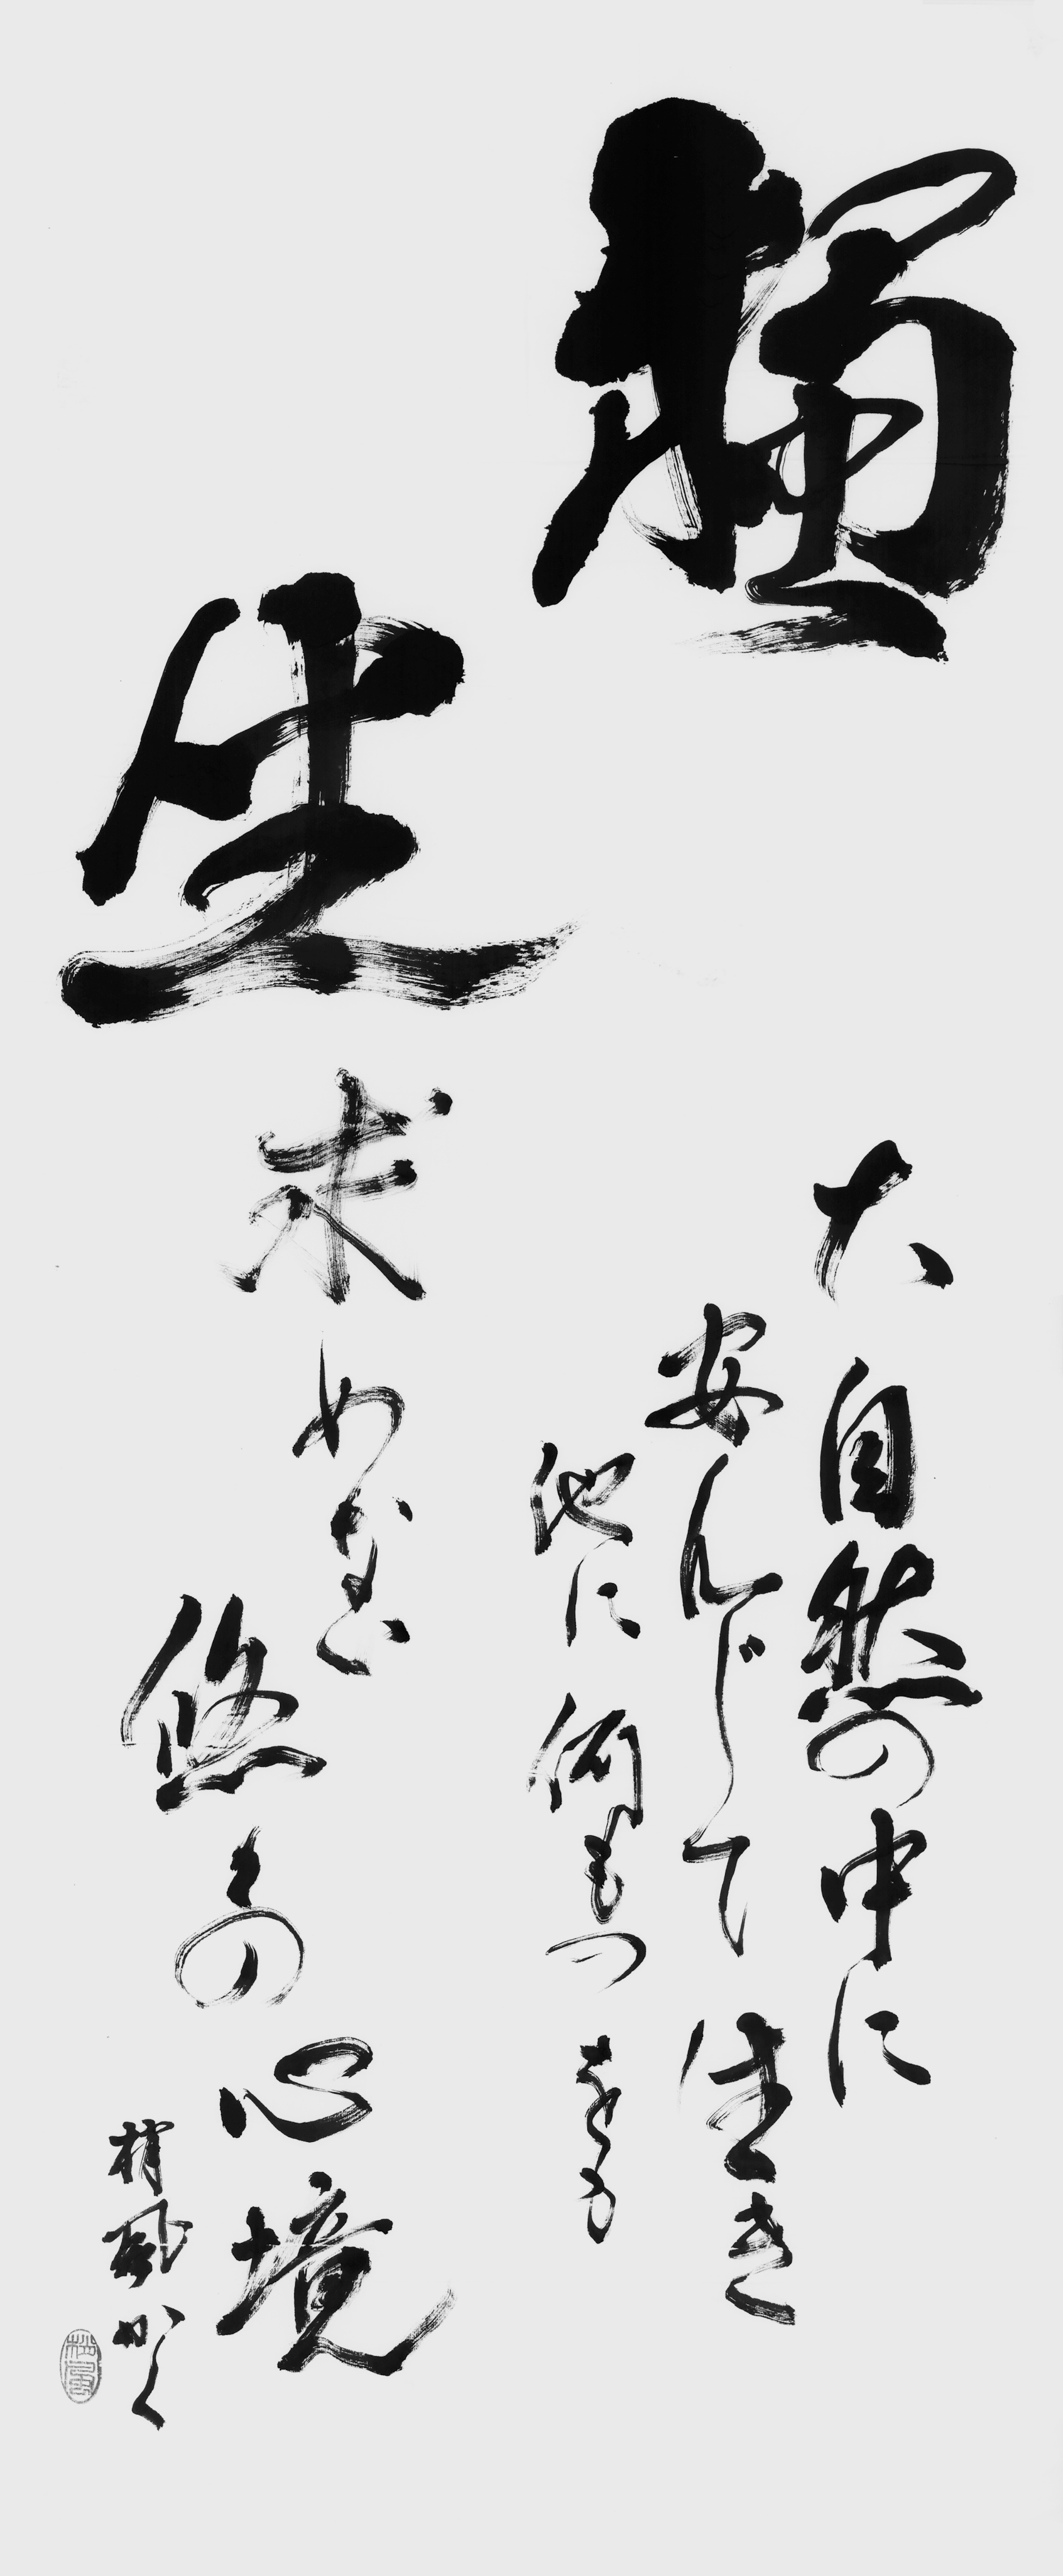 生
大自然の中に
安んじて生き
他に何ものをも
求めない
悠々の心境
梢風かく